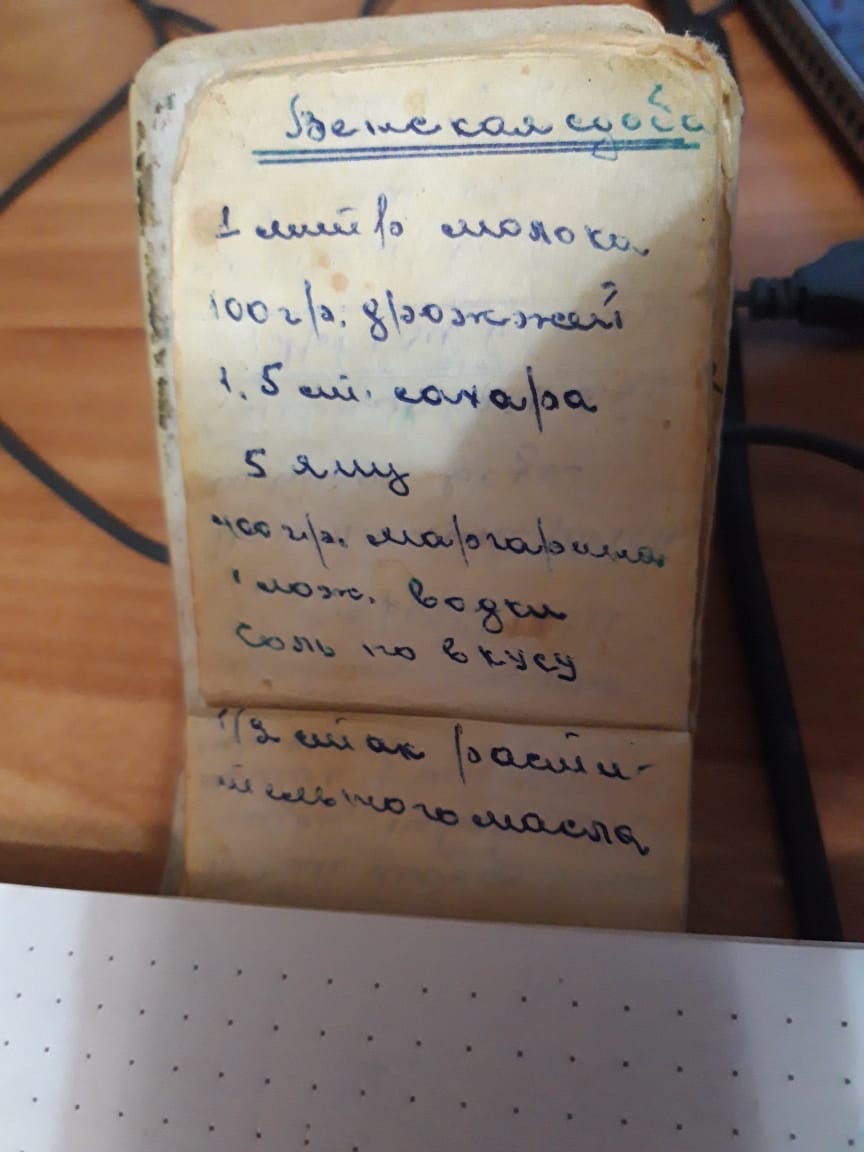 Венская сдоба
1 литр молока
100 гр. дрожжей
1.5 ст. сахара
5 яиц
400 гр. маргарина
1 лож. водки
Соль по вкусу
1/2 стак расти-
тельного масла